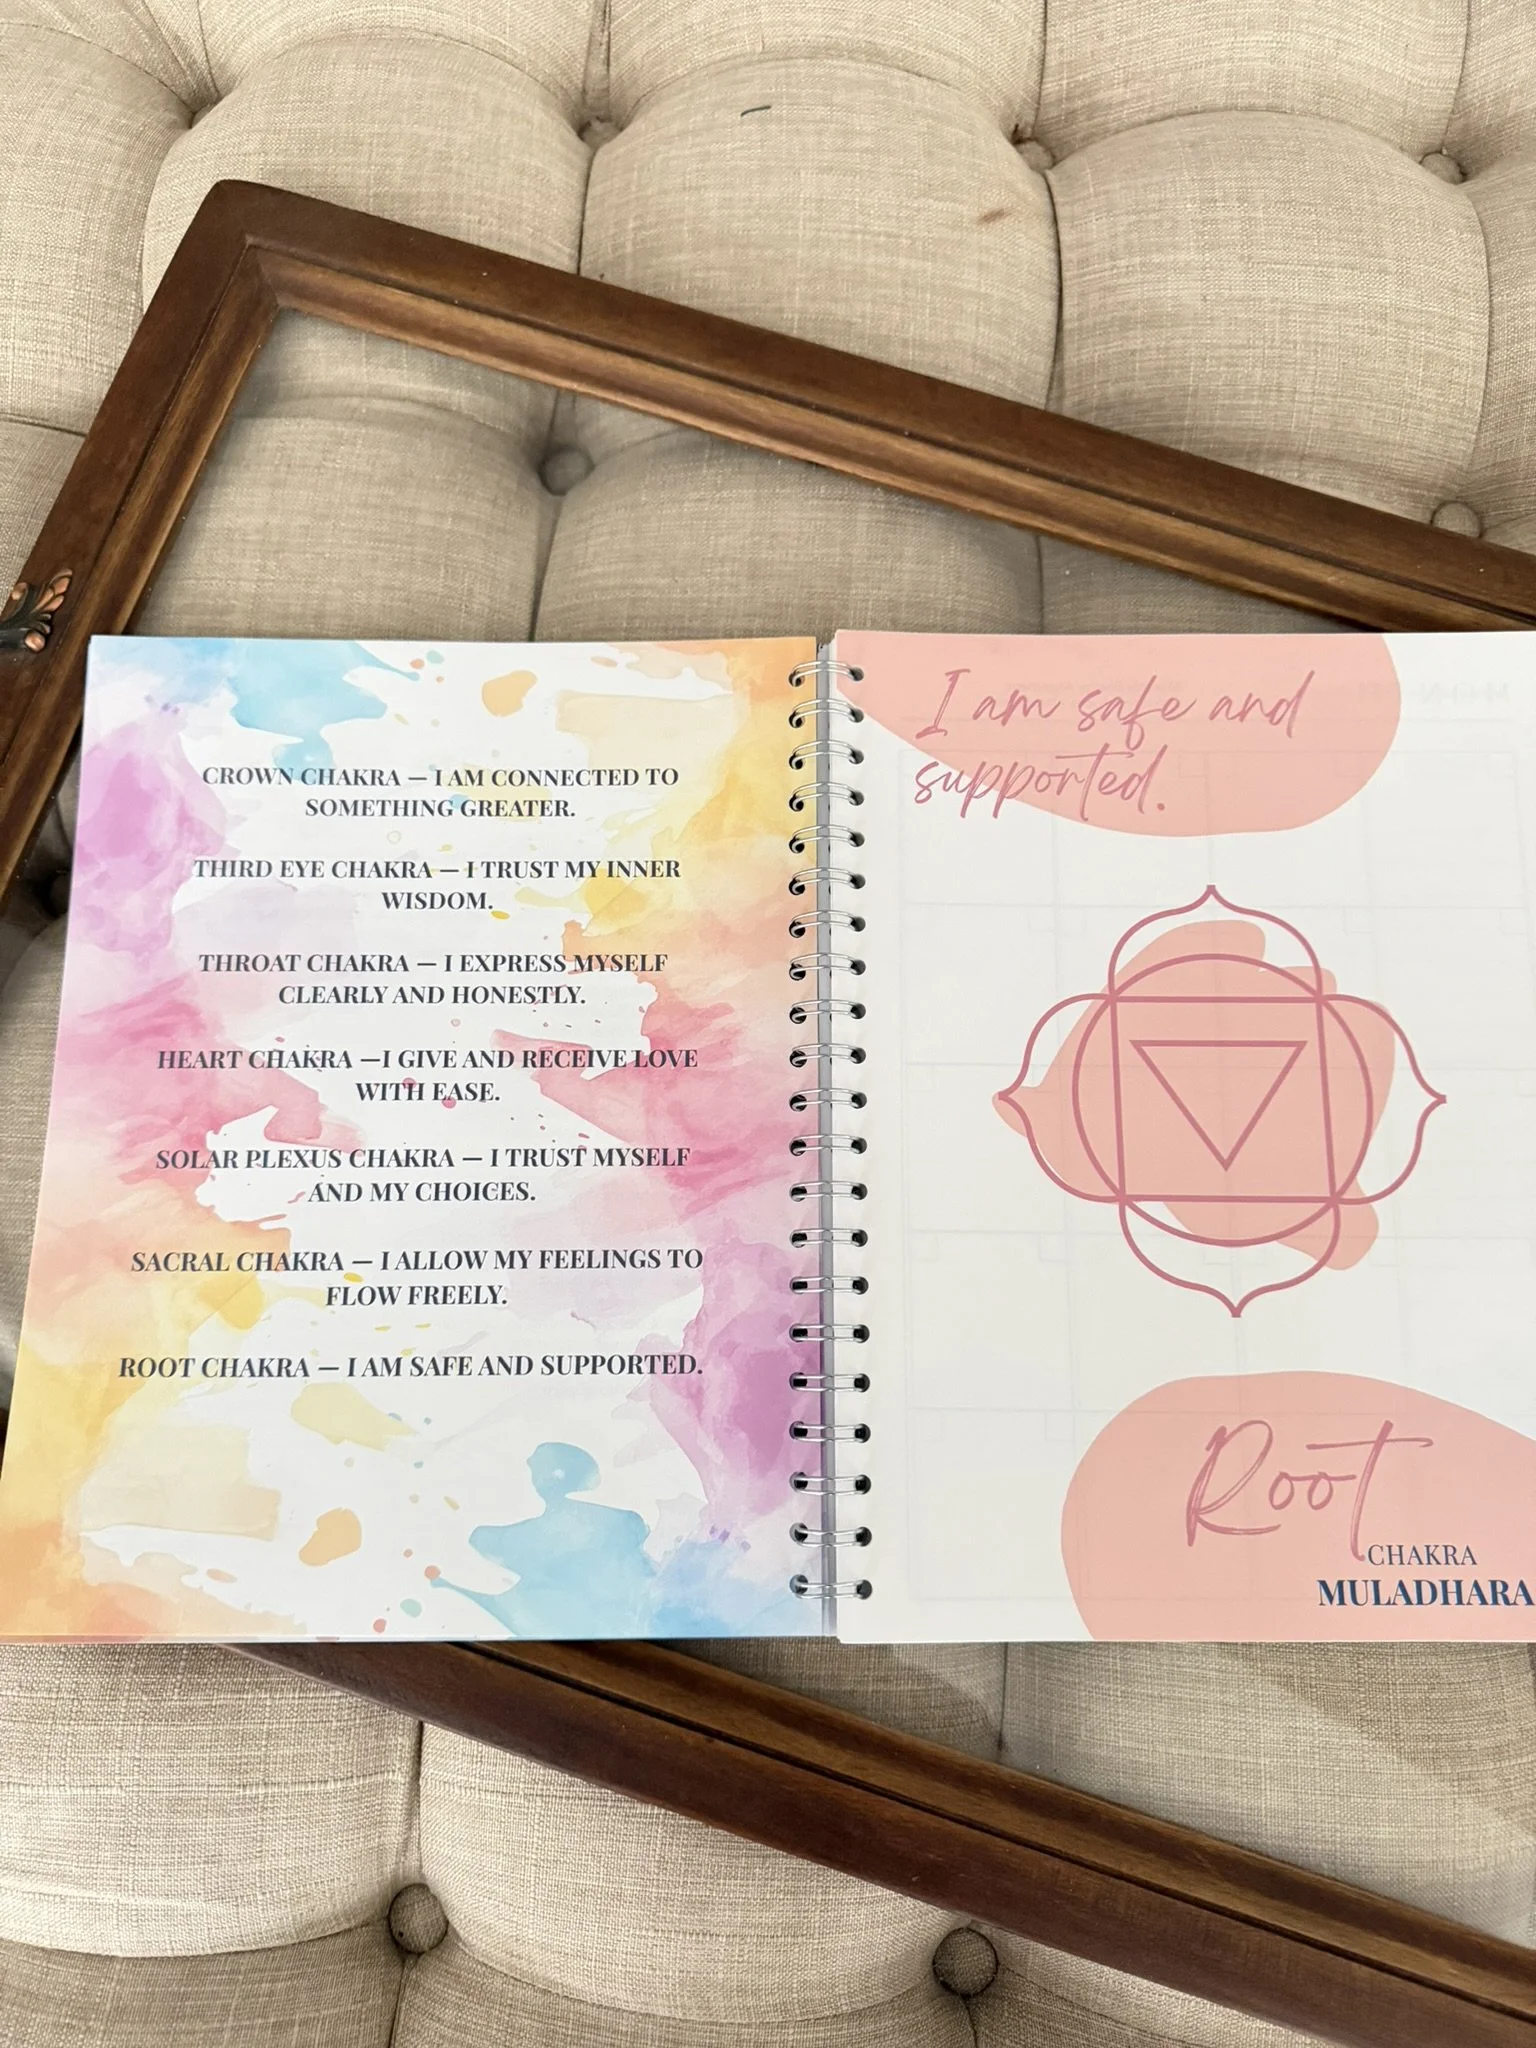 CROWN CHAKRA — I AM CONNECTED TO
SOMETHING GREATER.
THIRD EYE CHAKRA — I TRUST MY INNER
WISDOM.
THROAT CHAKRA — I EXPRESS MYSELF
CLEARLY AND HONESTLY.
HEART CHAKRA —I GIVE AND RECEIVE LOVE
WITH EASE.
SOLAR PLEXUS CHAKRA — I TRUST MYSELF
AND MY CHOICES.
SACRAL CHAKRA — I ALLOW MY FEELINGS TO
FLOW FREELY.
ROOT CHAKRA — I AM SAFE AND SUPPORTED.
I am safe and
supported.
Root
CHAKRA
MULADHARA